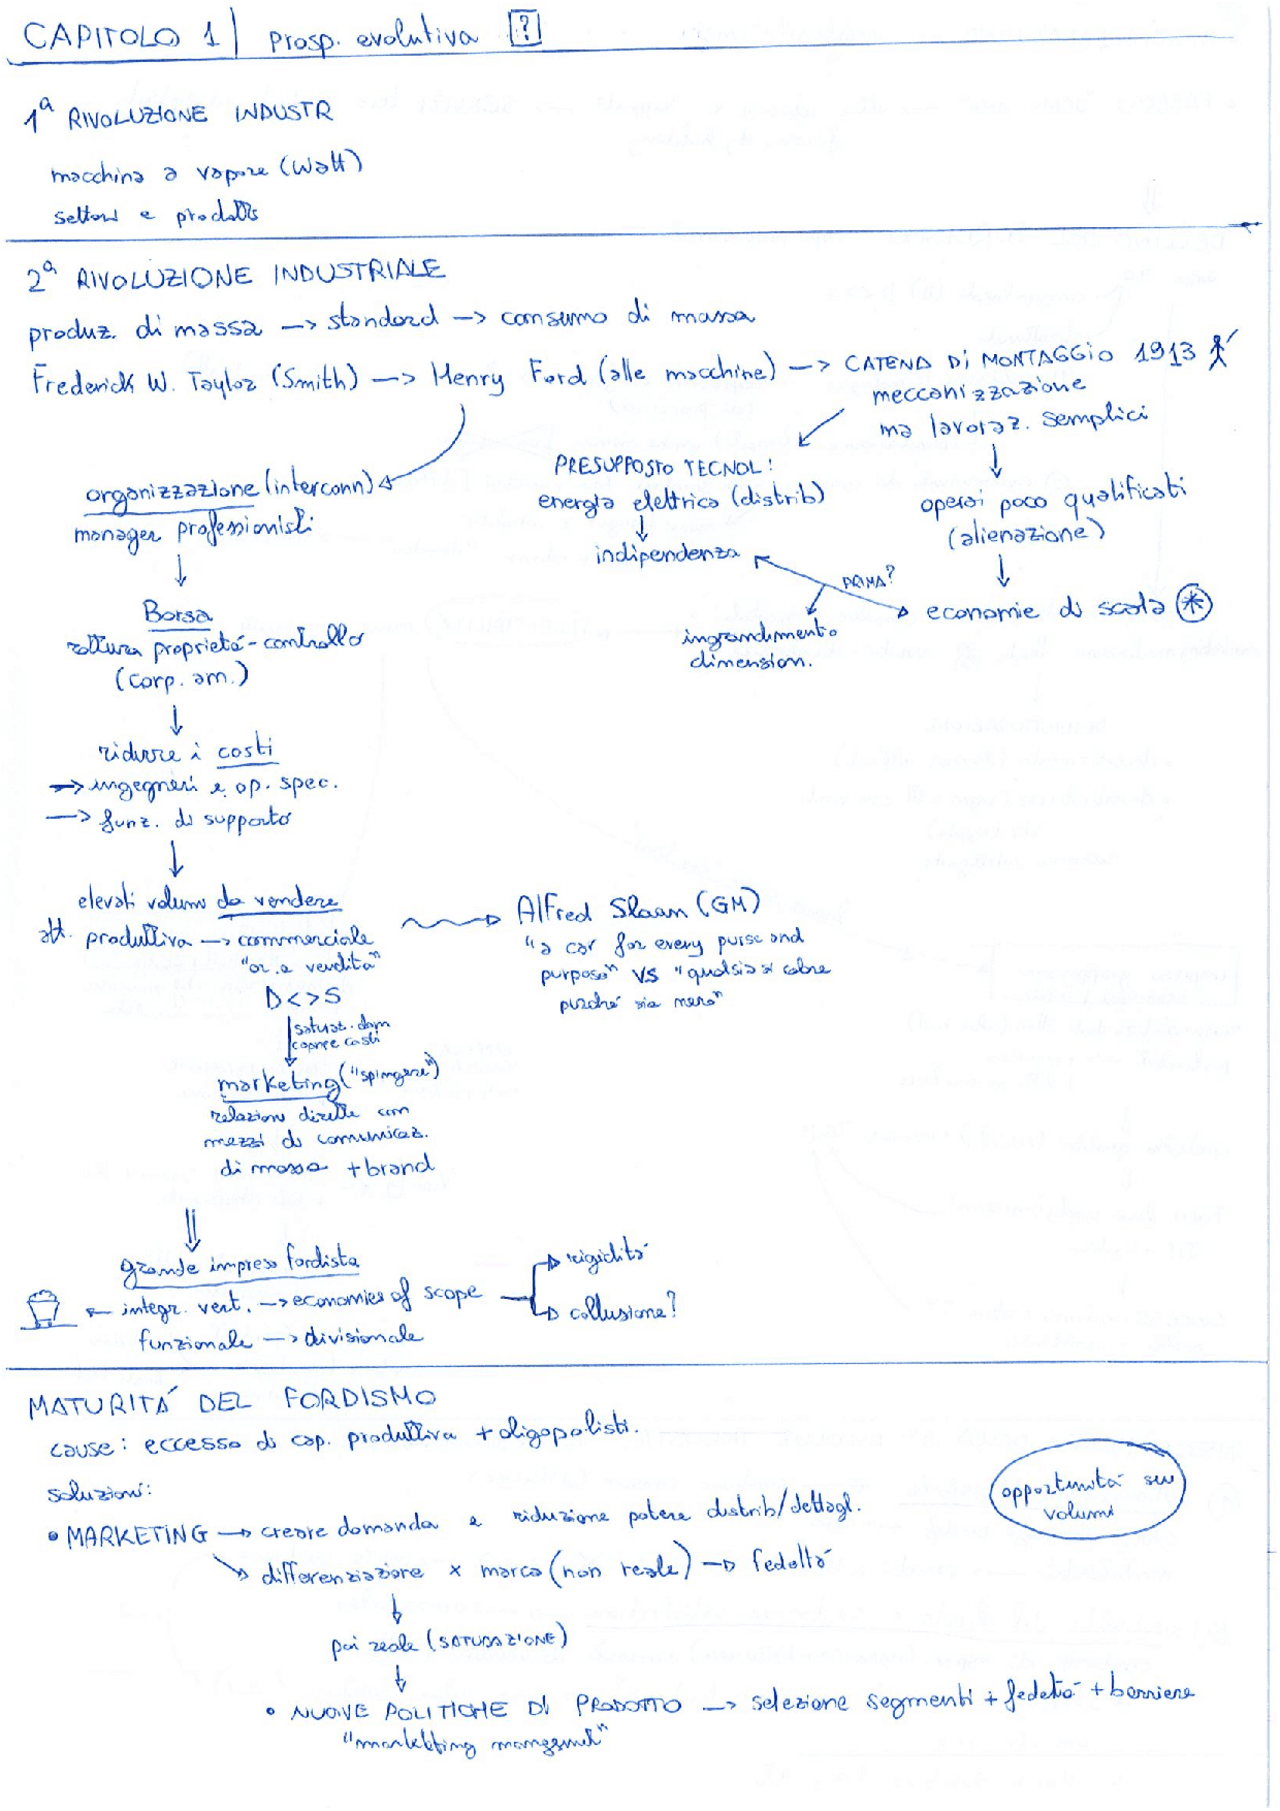 CAPITOLO 1 | Prosp. evolutiva [?]
1ª RIVOLUZIONE INDUSTR
macchina a vapore (Watt)
settori e prodotti
2ª RIVOLUZIONE INDUSTRIALE
produz. di massa —> standard —> consumo di massa
Frederick W. Taylor (Smith) —> Henry Ford (alle macchine) —> CATENA DI MONTAGGIO 1913
meccanizzazione
ma lavoraz. semplici
PRESUPPOSTO TECNOL:
energia elettrica (distrib)
indipendenza
operai poco qualificati
(alienazione)
PRIMA?
economie di scala *
ingrandimento
dimension.
organizzazione (interconn)
manager professionisti
Borsa
rottura proprietà-controllo
(corp. am.)
ridurre i costi
—> ingegneri e op. spec.
—> funz. di supporto
elevati volumi da vendere
att. produttiva —> commerciale
"or. a vendita"
D<>S
saturaz. dom
coprire costi
marketing ("spingere")
relazioni dirette con
mezzi di comunicaz.
di massa + brand
Alfred Sloan (GM)
"a car for every purse and
purpose" VS "qualsiasi colore
purché sia nero"
grande impresa fordista
<— integr. vert. —> economies of scope
funzionale —> divisionale
rigidità
collusione?
MATURITÀ DEL FORDISMO
cause: eccesso di cap. produttiva + oligopolisti.
soluzioni:
• MARKETING —> creare domanda e riduzione potere distrib/dettagl.
differenziazione x marca (non reale) —> fedeltà
poi reale (SATURAZIONE)
• NUOVE POLITICHE DI PRODOTTO —> selezione segmenti + fedeltà + barriere
"marketing management"
opportunità sui
volumi